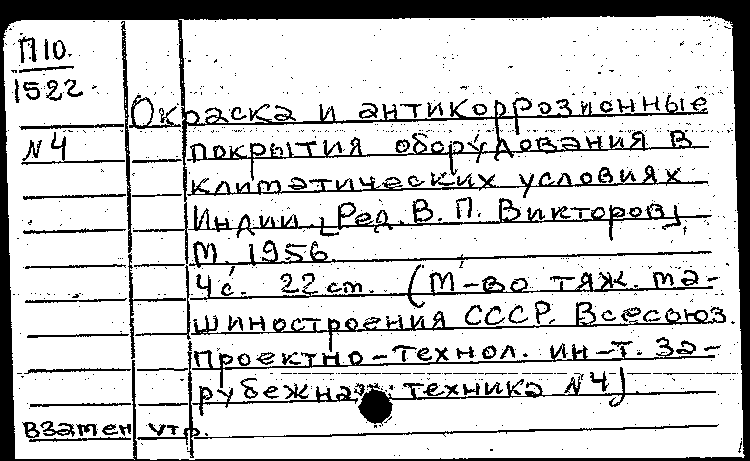 П10.
1522
Окраска и антикоррозионные
N4 покрытия оборудования в
климатических условиях
Индии. [Ред. В. П. Викторов]
М. 1956.
4 с. 22 cm. (М-во тяж. ма-
шиностроения СССР. Всесоюз.
проектно-технол. ин-т. За-
рубежная техника N4).
взамен утр.